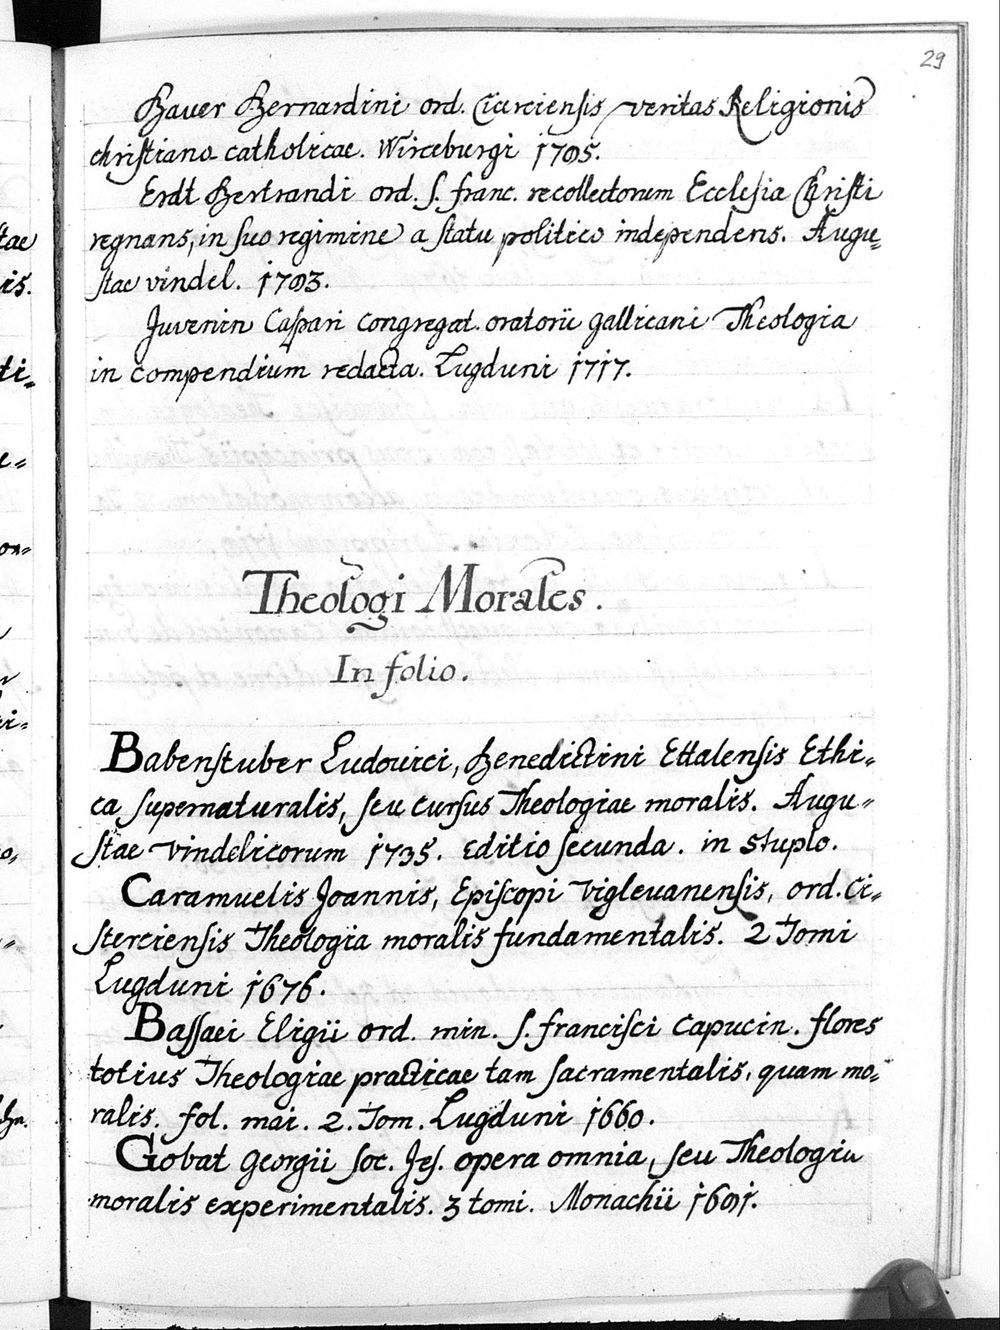 29
Bauer Bernardini ord. Cisterciensis veritas Religionis
christiano catholicae. Wirceburgi 1795.
Erdt Bertrandi ord. S. franc. recollectorum Ecclesia Christi
regnans, in suo regimine a statu politico independens. Augu=
stae vindel. 1793.
Juvenin Caspari Congregat. oratorii gallicani Theologia
in compendium redacta. Lugduni 1717.
Theologi Morales.
In folio.
Babenstuber Ludovici, Benedictini Ettalensis Ethi=
ca supernaturalis, seu cursus Theologiae moralis. Augu=
stae vindelicorum 1735. Editio secunda. in duplo.
Caramuelis Joannis, Episcopi viglevanensis, ord. Ci=
sterciensis Theologia moralis fundamentalis. 2 Tomi
Lugduni 1676.
Bassaei Eligii ord. min. S. francisci Capucin. flores
totius Theologiae practicae tam sacramentalis, quam mo=
ralis. fol. mai. 2. Tom. Lugduni 1660.
Gobat Georgii Soc. Jes. opera omnia, seu Theologia
moralis experimentalis. 3 tomi. Monachii 1691.
tae
is.
ti=